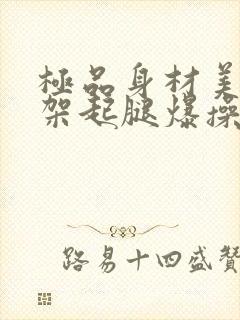 極品身材美
架起腿爆操
路易十四盛贊